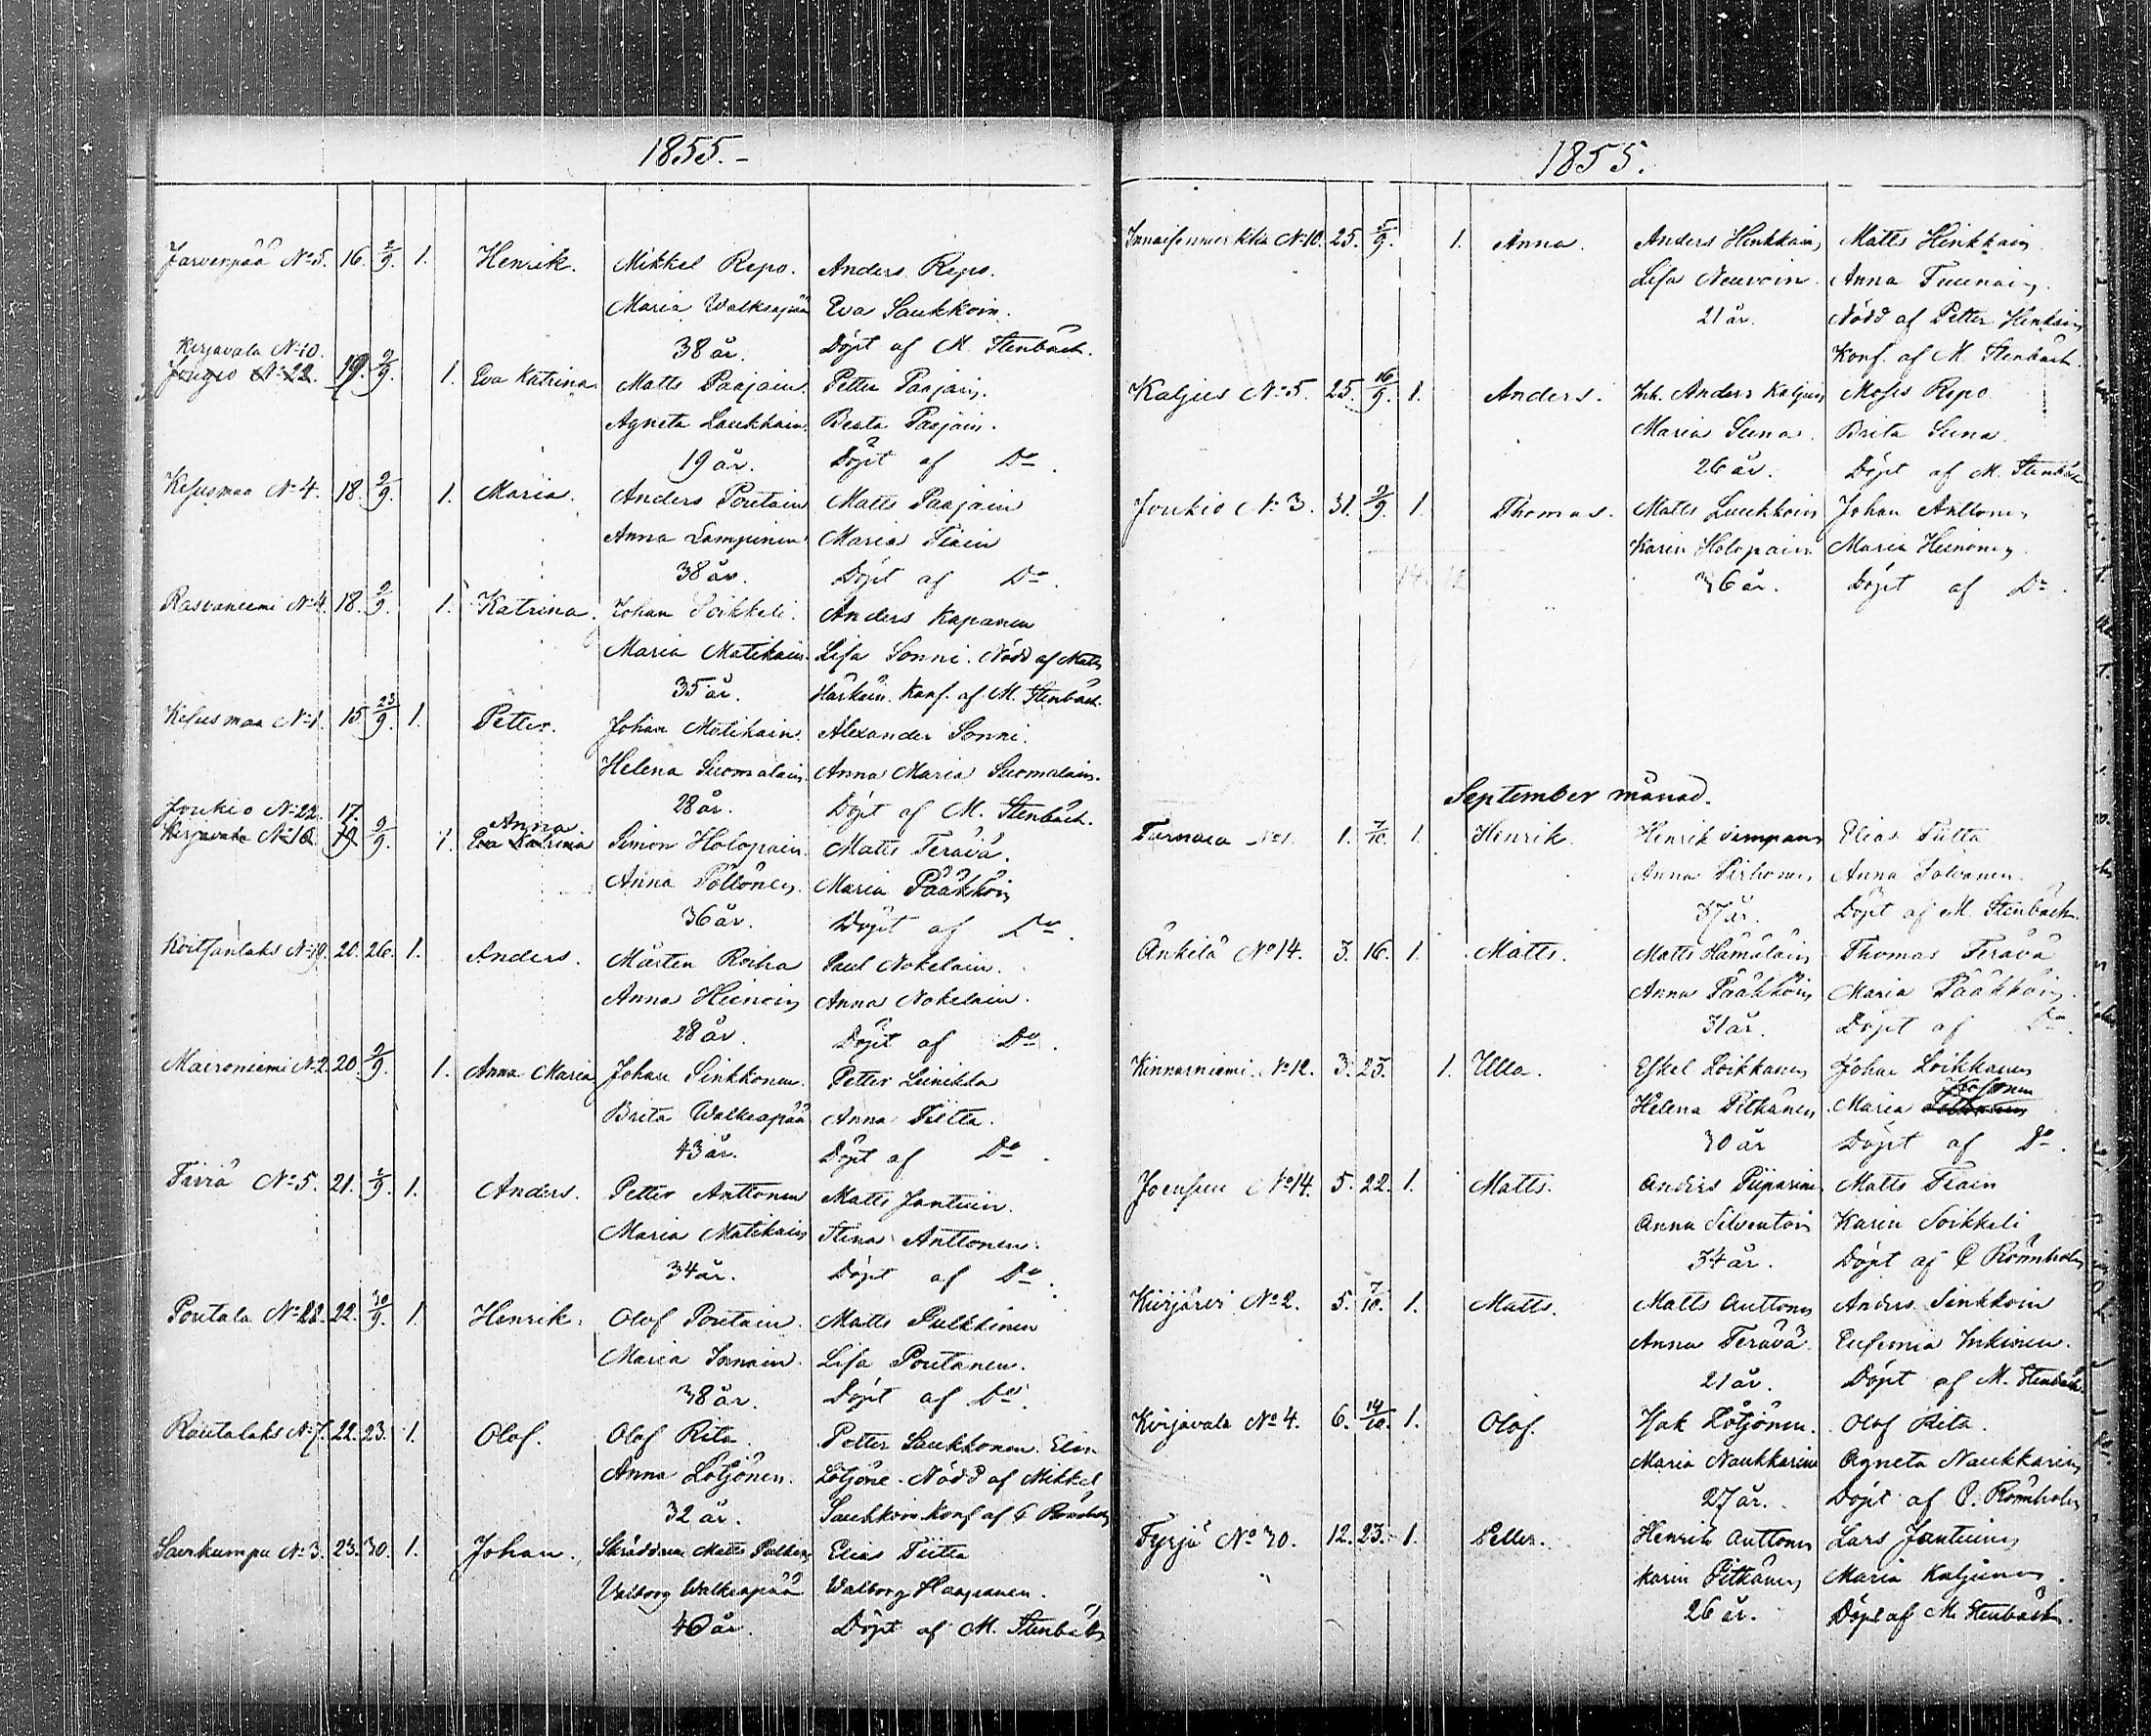 1855.-
Jarvenpää No 5. 16. 2/9. 1. Henrik. Mikkel Repo. Anders Repo.
Maria Walkeapää Eva Saukkoin.
38 år. Döpt af M. Stenbäck.
Kirjavala No 10.
Joukio No 22. 19. 9/9. 1. Eva Katrina. Matts Paajain. Petter Paajain.
Agneta Laukkain. Beata Paajain.
19 år. Döpt af Do.
Kesusmaa No 4. 18. 2/9. 1. Maria. Anders Poutain Matts Paajain
Anna Lampinen Maria Tiain
38 år. Döpt af Do.
Rasvaniemi No 4. 18. 2/9. 1. Katrina. Johan Soikkeli. Anders Kapanen
Maria Matikain. Lisa Sonni. Nödd af Matts
35 år. Härköin. Konf. af M. Stenbäck.
Kesusmaa No 1. 15. 23/9. 1. Petter. Johan Matikain. Alexander Sonni.
Helena Suomalain. Anna Maria Suomalain.
28 år. Döpt af M. Stenbäck.
Joukio No 22. 17.
Anna
Kirjavala No 10. 19. 9/9. 1. Eva Katrina Simon Holopain. Matts Terävä.
Anna Pöllönen. Maria Pääkköin
36 år. Döpt af Do.
Koitsanlaks No 19. 20. 26. 1. Anders. Mårten Roiha Paul Nokelain.
Anna Heinoin Anna Nokelain.
28 år. Döpt af Do.
Maironiemi No 2. 20. 2/9. 1. Anna Maria Johan Sinkkonen. Petter Leinikka
Brita Walkeapää Anna Tiitta.
43 år. Döpt af Do.
Tiviä No 5. 21. 2/9. 1. Anders. Petter Anttonen Matts Jantuin.
Maria Matikain Stina Anttonen.
34 år. Döpt af Do.
Poutala No 22. 30/9. 1. Henrik. Olof Poutain. Matts Pulkkinen
Maria Innain. Lisa Poutanen.
38 år. Döpt af Do.
Rautalaks No 7. 22. 23. 1. Olof. Olof Rita. Petter Saukkonen. Elin
Anna Lötjönen. Lötjöne. Nödd af Mikkel
32 år. Saukkoin Konf af C Rönnholm
Saarkumpu No 3. 23. 30. 1. Johan. Skräddare Matts Elias Tiitta
Valborg Walkeapää Walborg Haapanen.
40 år. Döpt af M. Stenbäck
1855.
No 10. 25. 5/9. 1. Anna. Anders Hinkkain Matts Hinkkain
Lisa Neuvoin. Anna Tuunain.
21 år. Nödd af Petter Hinkkain
Konf. af M. Stenbäck.
Kaljus No 5. 25. 16/9. 1. Anders. Inh. Anders Kaljuin Moses Repo
Maria Suna. Brita Suna.
26 år. Döpt af M. Stenbäck
Joukio No 3. 31. 9/9. 1. Thomas. Matts Luukkoin Johan Anttonen
Karin Holopain. Maria Heinonen.
36 år. Döpt af Do.
September månad.
No 1. 1. 7/10. 1. Henrik. Henrik Simpanen Elias Tiitta
Anna Anna Salvanen.
37 år. Döpt af M. Stenbäck.
Änkilä No 14. 3. 16. 1. Matts. Matts Hämäläin Thomas Terävä
Anna Pääkköin Maria Pääkköin.
31 år. Döpt af Do.
Kinnarniemi. No 12. 3. 23. 1. Ulla. Eskel Loikkanen Johan Loikkanen
Kosonen
Helena Pitkänen. Maria
30 år Döpt af Do.
Joensuu No 14. 5. 22. 1. Matts. Anders Piiparinen Matts Tiain
Anna Silventoin Karin Soikkeli
34 år. Döpt af C Rönnholm
Kiurjärvi No 2. 5. 7/10. 1. Matts. Matts Anttonen Anders Sinkkoin
Anna Terävä. Eufemia Inkinen.
21 år. Döpt af M. Stenbäck.
Kirjavala No 4. 6. 14/10. 1. Olof. Isak Lötjönen. Olof Rita.
Maria Naukkarinen Agneta Naukkarinen
27 år. Döpt af C. Rönnholm
Tyrjä No 30. 12. 23. 1. Petter. Henrik Anttonen Lars Jantunen
Karin Pitkänen Maria Kaljunen.
26 år. Döpt af M. Stenbäck.